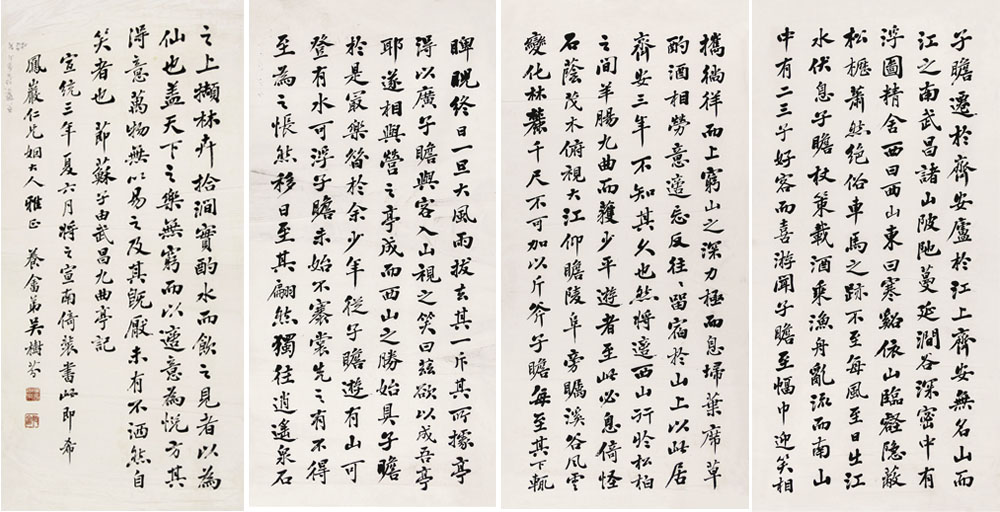 子瞻遷於齊安廬於江上齊安無名山而
江之南武昌諸山陂陁蔓延澗谷深密中有
浮圖精舍西曰西山東曰寒谿依山臨壑隱蔽
松櫪蕭然絕俗車馬之跡不至每風至日出江
水伏息子瞻杖策載酒乘漁舟亂流而南山
中有二三子好客而喜游聞子瞻至幅巾迎笑相
攜徜徉而上窮山之深力極而息掃葉席草
酌酒相勞意適忘反往〻留宿於山上以此居
齊安三年不知其久也然將適西山行於松柏
之間羊腸九曲而獲少平遊者至此必息倚怪
石蔭茂木俯視大江仰瞻陵阜旁矚溪谷風雲
變化林麓千尺不可加以斤斧子瞻每至其下輒
睥睨終日一旦大風雨拔去其一斥其所據亭
得以廣子瞻與客入山視之笑曰茲欲以成吾亭
耶遂相與營之亭成而西山之勝始具子瞻
於是最樂昔於余少年從子瞻遊有山可
登有水可浮子瞻未始不褰裳先之有不得
至為之悵然移日至其翩然獨往逍遙泉石
之上擷林卉拾澗實酌水而飲之見者以為
仙也蓋天下之樂無窮而以適意為悅方其
得意萬物無以易之及其既厭未有不洒然自
笑者也 節蘇子由武昌九曲亭記
宣統三年夏六月將之宣南倚裝書此即希
鳳巖仁兄姻大人雅正 養畬弟吳樹芬